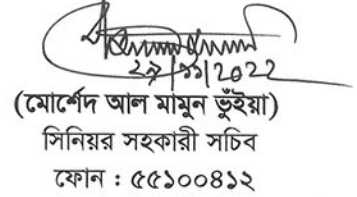 ২৯/১১/2022
(মোর্শেদ আল মামুন ভুঁইয়া)
সিনিয়র সহকারী সচিব
ফোন : ৫৫১০০৪১২